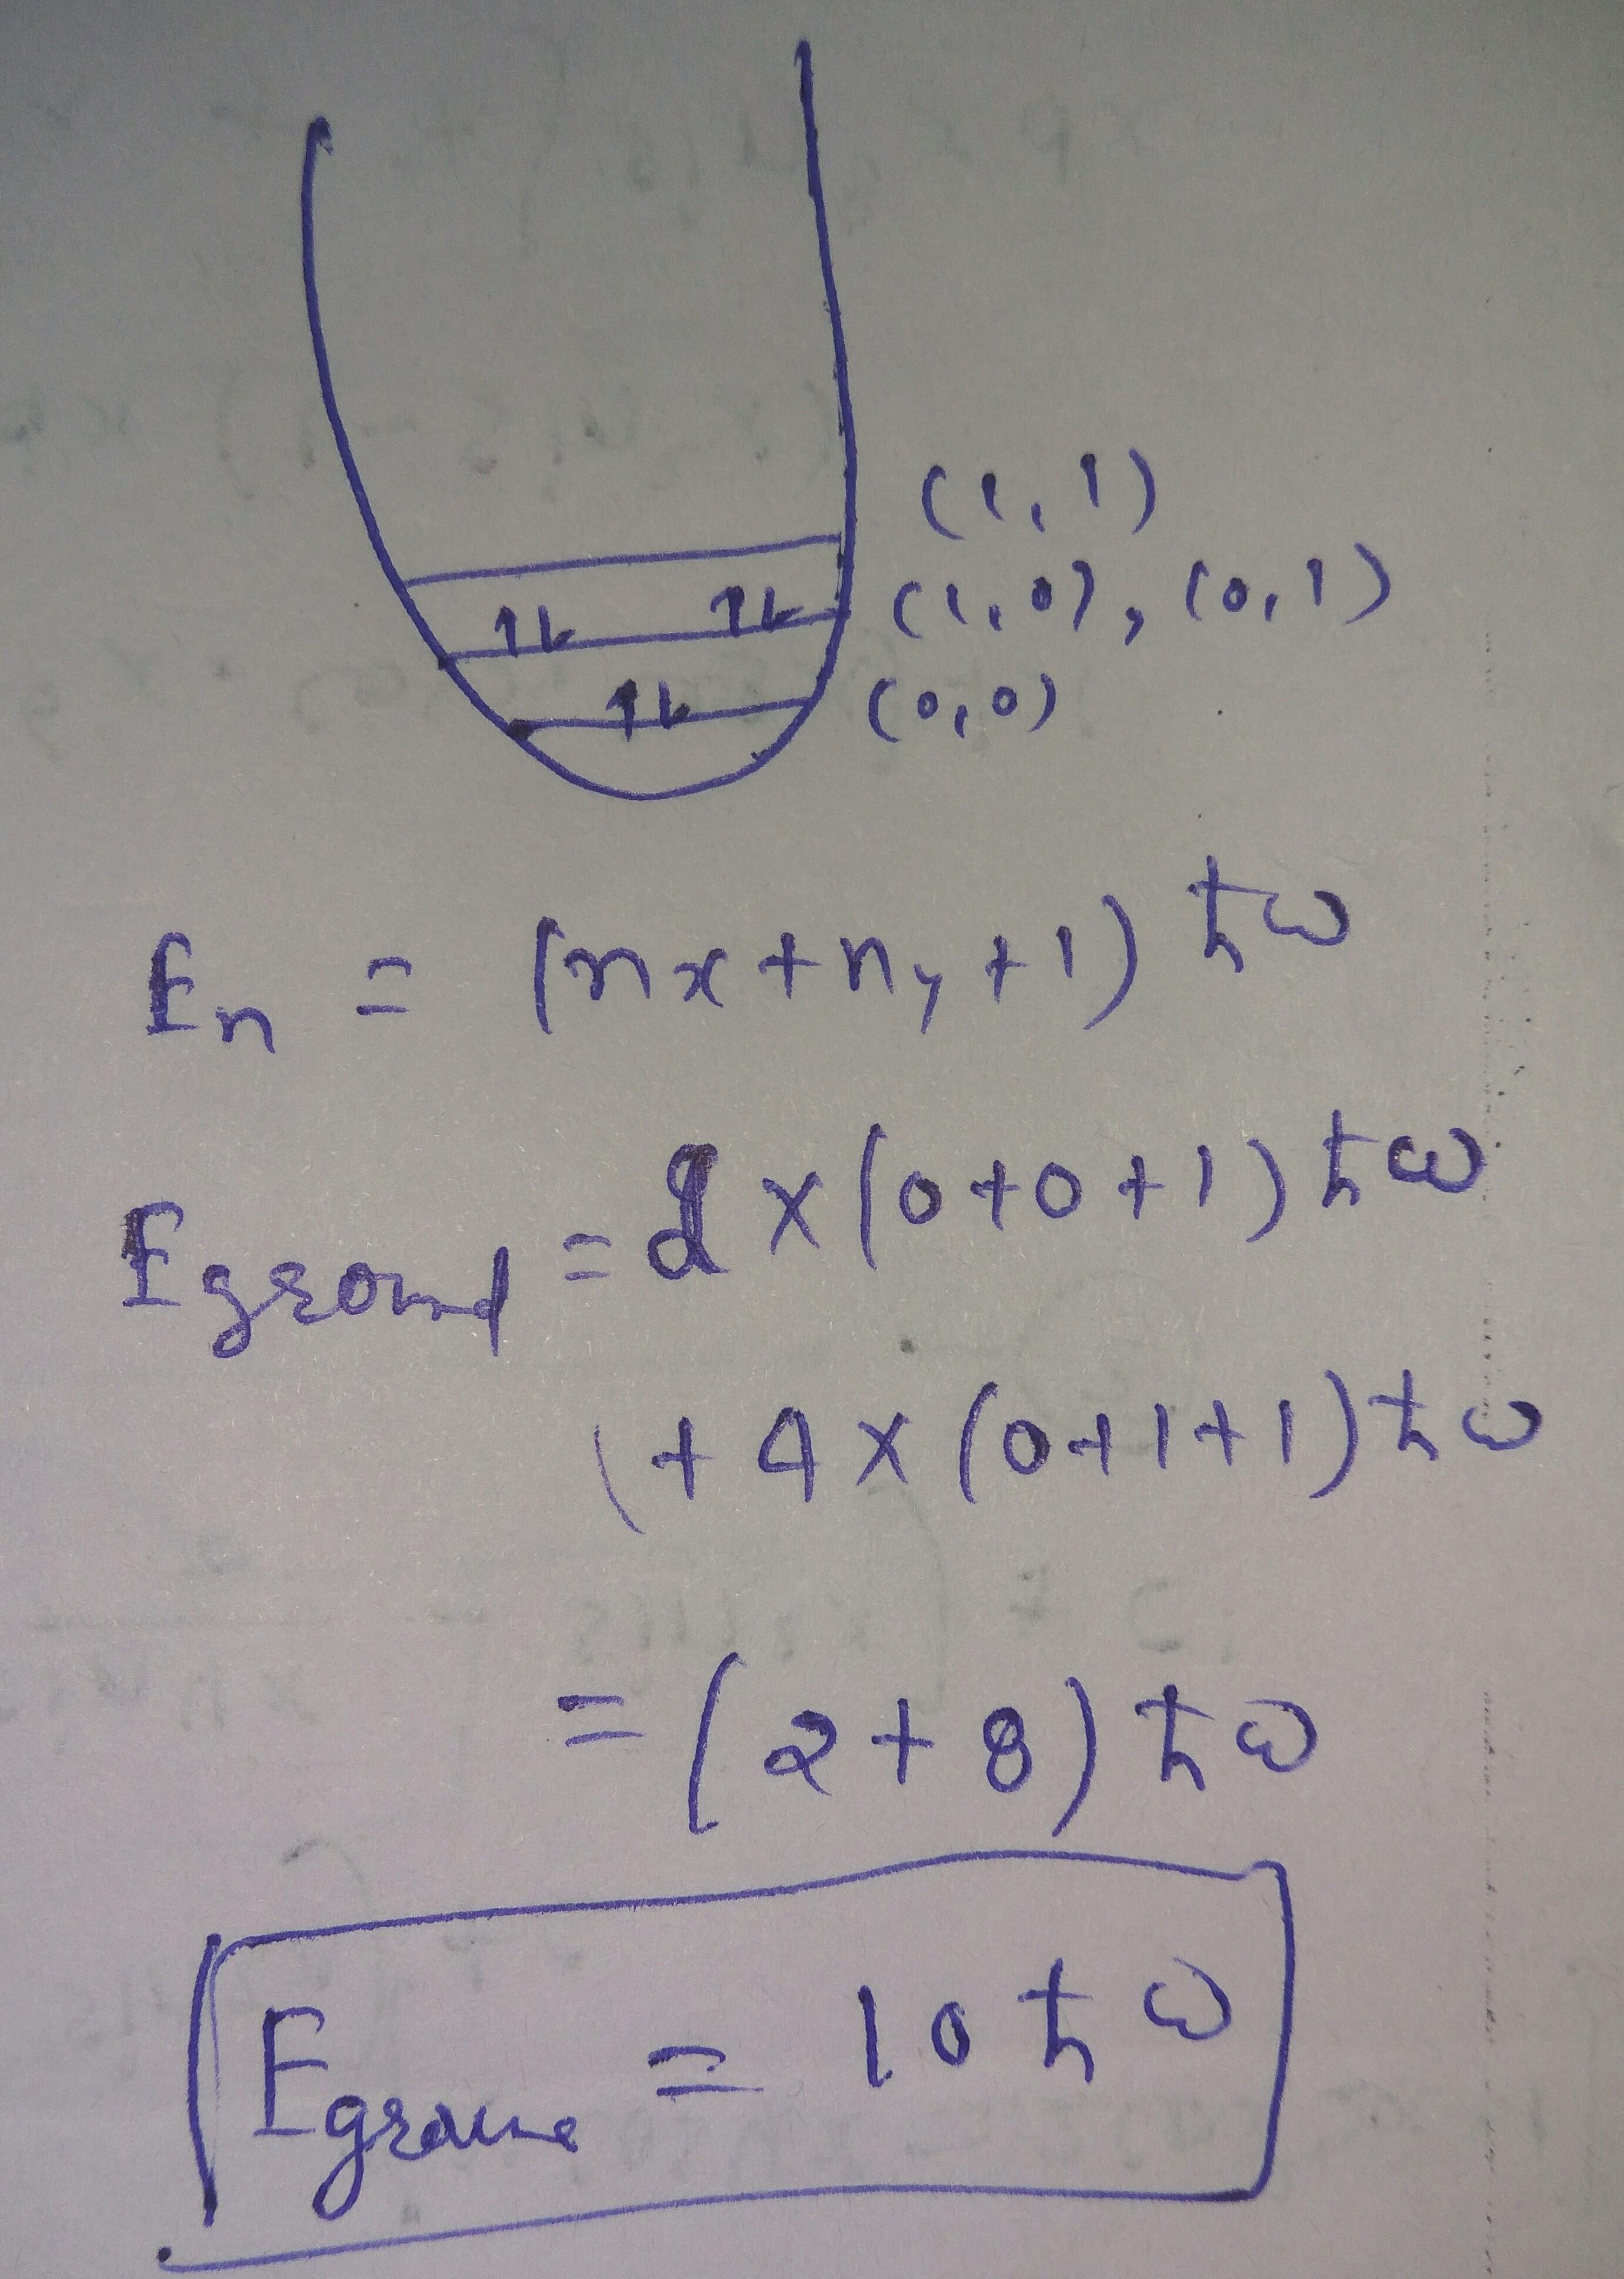 (1,1)
↿⇂ ↿⇂ (1,0), (0,1)
↿⇂ (0,0)
En = (nx+ny+1) ħω
Eground = 2 × (0+0+1) ħω
+ 4 × (0+1+1) ħω
= (2+8) ħω
Eground = 10 ħω